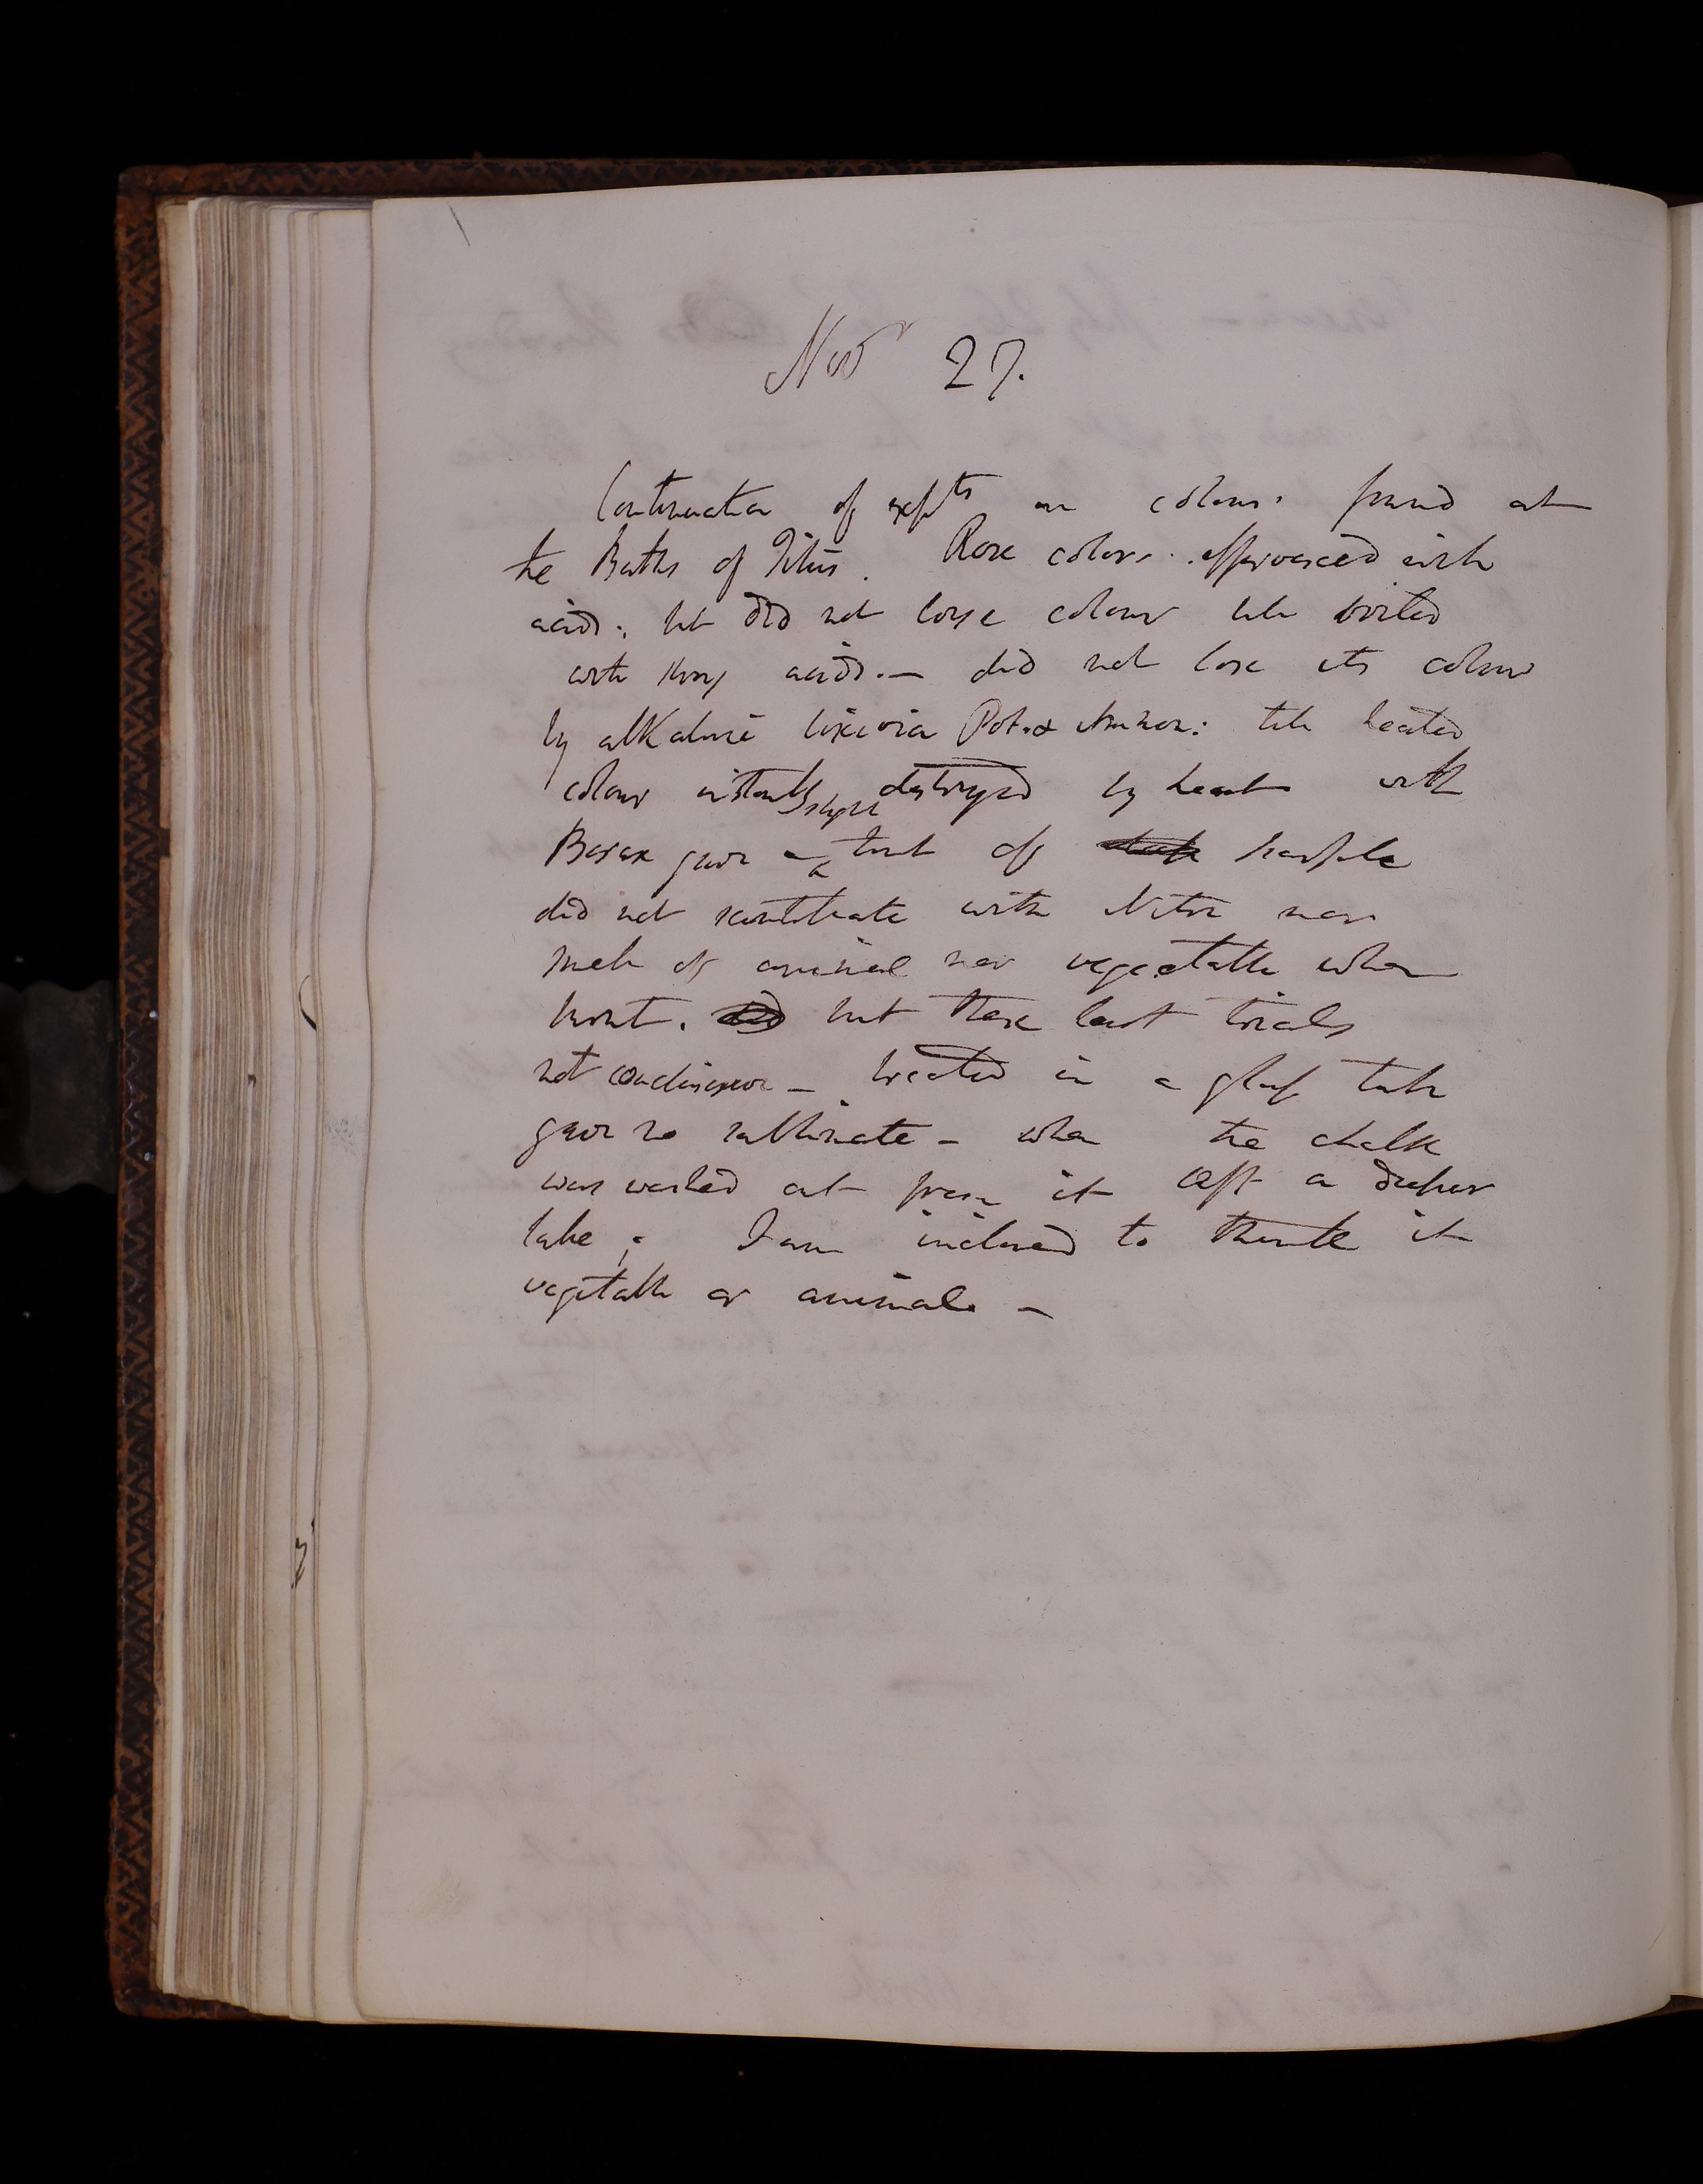 Nov 27.
Continuation of exp^ts on colours found at
the Baths of Titus. Rose colors. effervesced with
acids. but did not loose colour till boiled
with strong acids. — did not lose its colour
by alkaline lixivia Pot. & Ammon: till heated
colour instantly destroyed by heat with
Borax gave a slight tint of purple
did not scintillate with Nitre nor
smell of animal nor vegetable when
burnt. but these last trials
not conclusive — heated in a glass tube
gave no sublimate — when the chalk
was washed out from it left a deeper
lake; I am inclined to think it
vegetable or animal. —